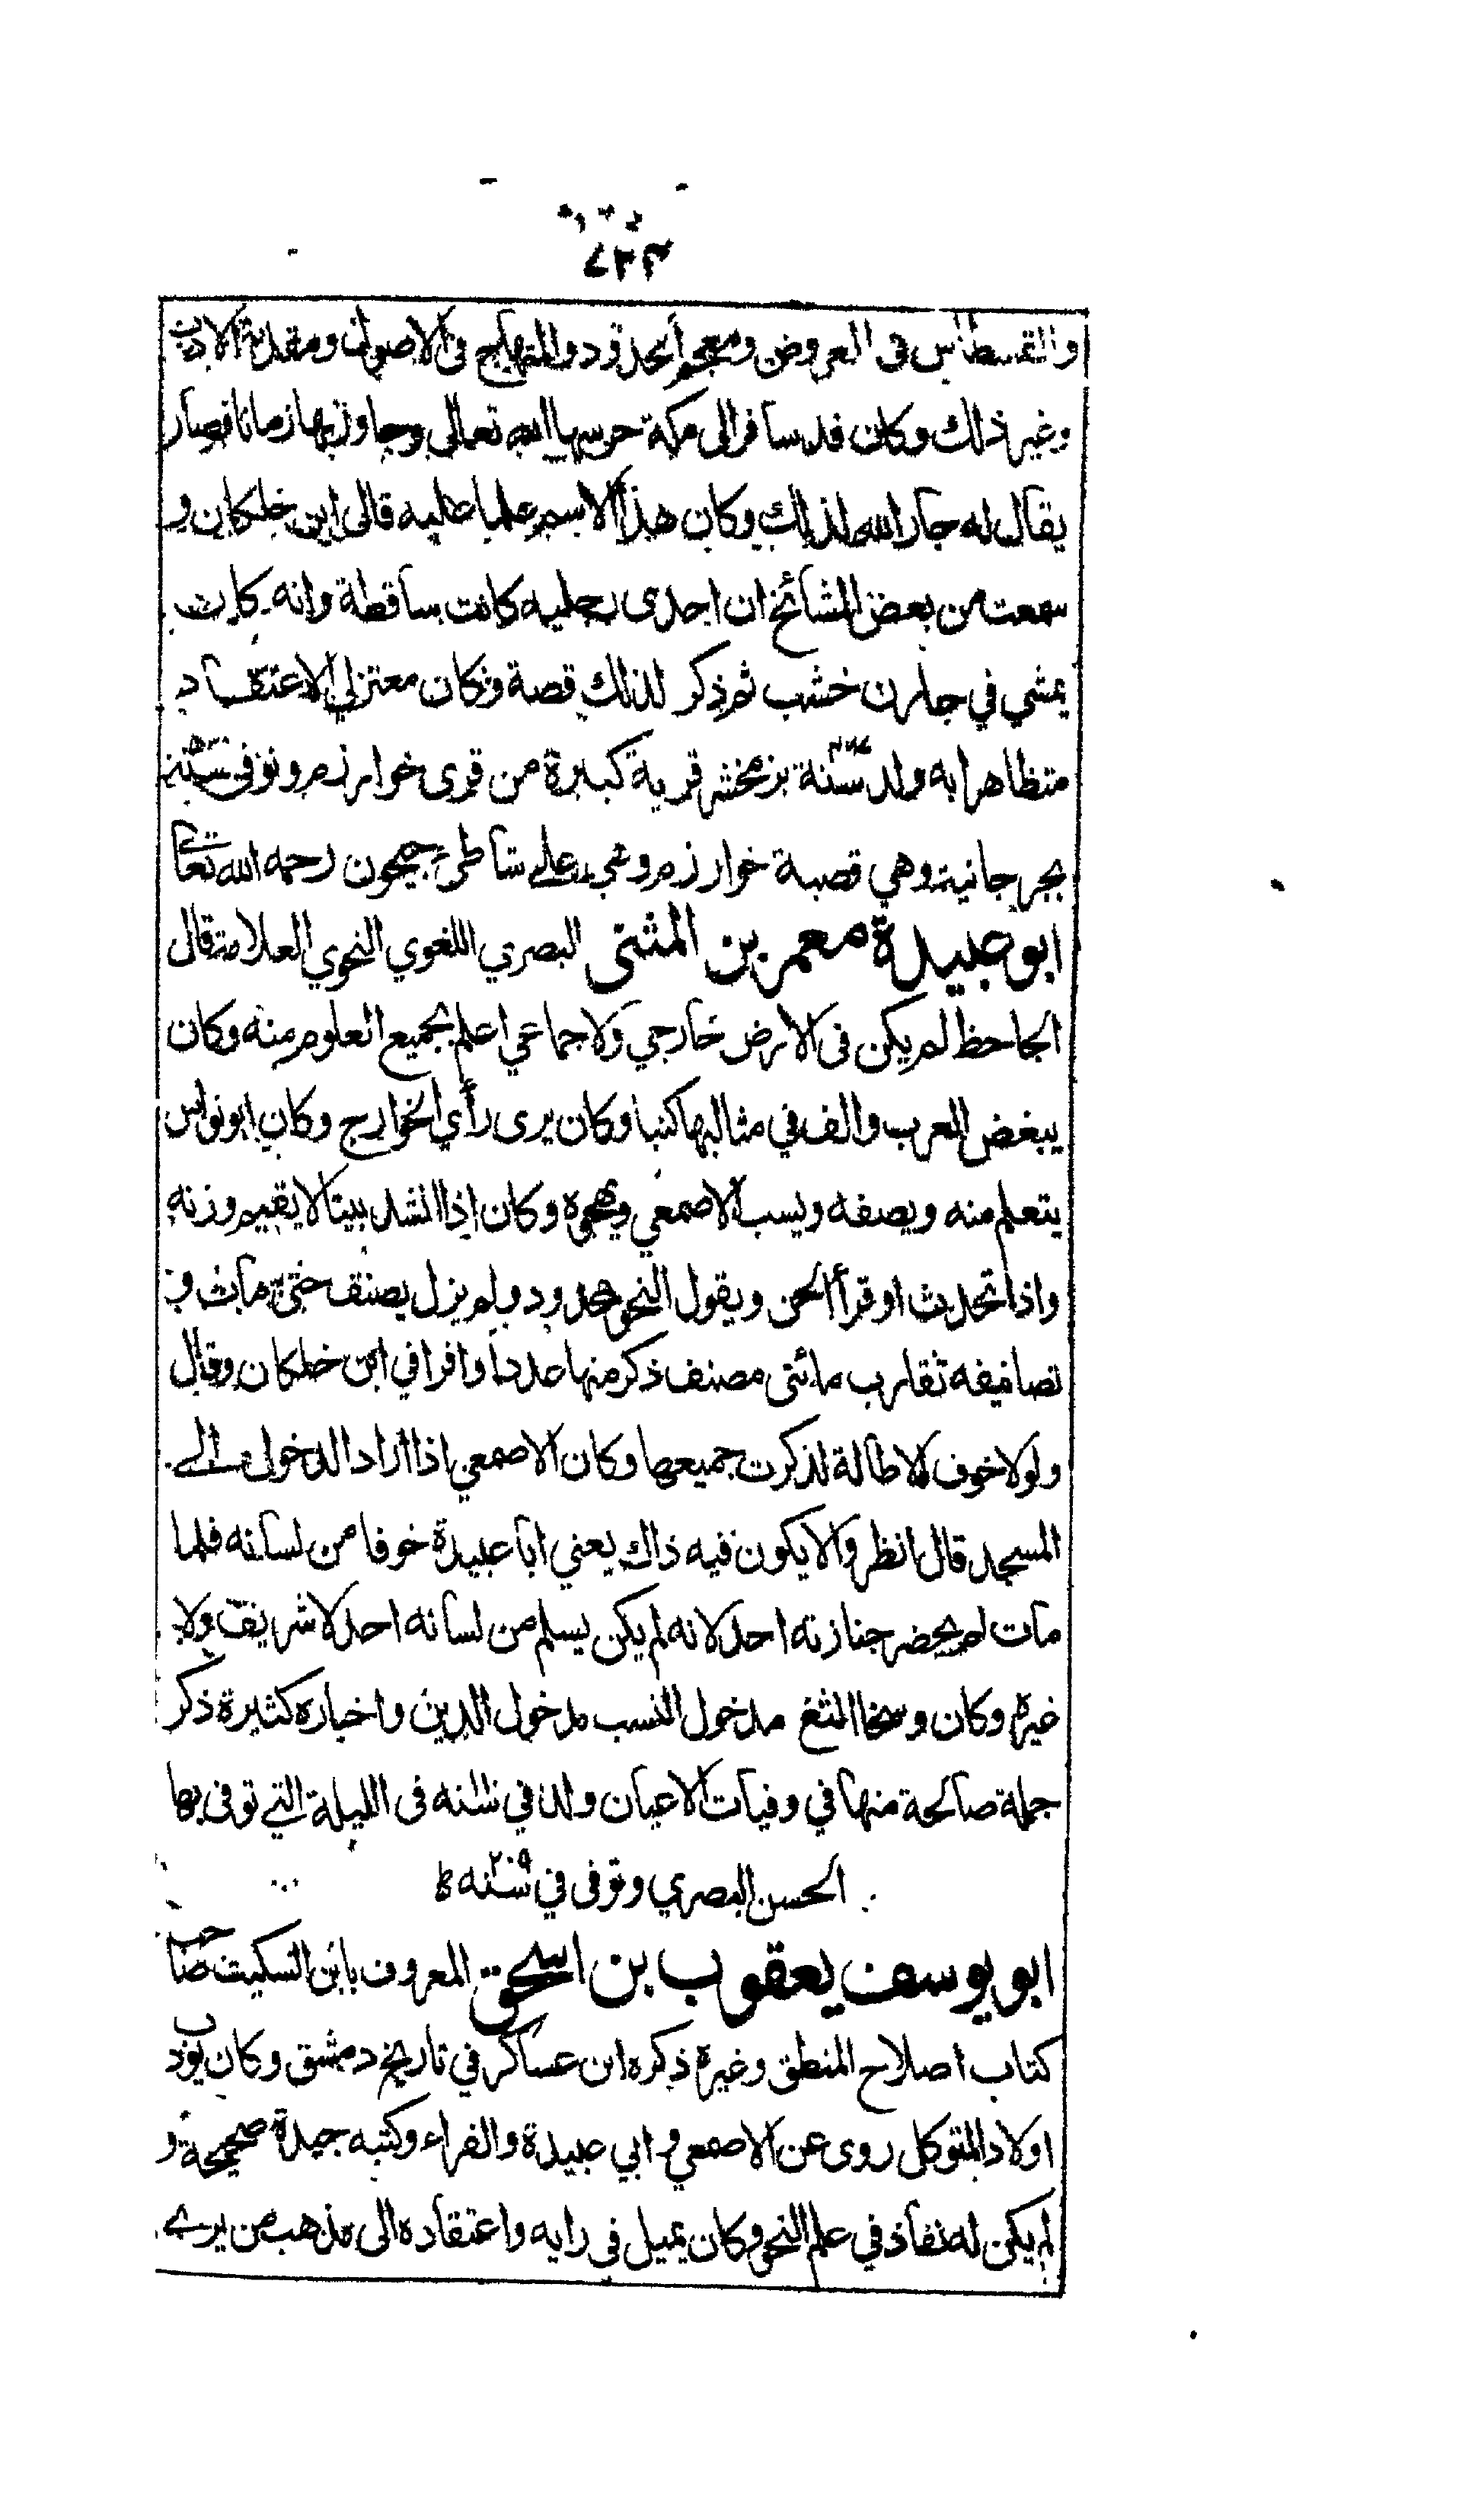 ٧٢٣
والقسطاس فى العروض ومعجم الحدود والمنهاج فى الاصول ومقدمة الادب
وغير ذلك وكان قد سافر الى مكة حرسها الله تعالى وجاور بها زمانا فصار
يقال له جار الله لذلك وكان هذا الاسم علما عليه قال ابن خلكان و
سمعت من بعض المشائخ ان احدى رجليه كانت ساقطة وانه كان
يمشي في جارن خشب ثم ذكر لذلك قصة وكان معتزلي الاعتقاد
متظاهرا به ولد سنة بزمخشر قرية كبيرة من قرى خوارزم وتوفى سنة
بجرجانية وهي قصبة خوارزم وهي على شاطئ جيحون رحمه الله تعالى
ابو عبيدة معمر بن المثنى البصري اللغوي النحوي العلامة قال
الجاحظ لم يكن فى الارض خارجي ولا جماعي اعلم بجميع العلوم منه وكان
يبغض العرب والف في مثالبها كتبا وكان يرى رأي الخوارج وكان ابو نواس
يتعلم منه ويصفه ويسب الاصمعي ويهجوه وكان اذا انشد بيتا لا يقيم وزنه
واذا تحدث او قرأ لحن ويقول النحو محدود ولم يزل يصنف حتى مات و
تصانيفه تقارب مائتى مصنف ذكر منها عددا وافرا في ابن خلكان وقال
ولولا خوف الاطالة لذكرت جميعها وكان الاصمعي اذا اراد الدخول الى
المسجد قال انظروا لا يكون فيه ذاك يعني ابا عبيدة خوفا من لسانه فلما
مات لم يحضر جنازته احد لانه لم يكن يسلم من لسانه احد لا شريف ولا
غيره وكان وسخا الثغ مدخول النسب مدخول الدين واخباره كثيرة ذكر
جملة صالحة منها في وفيات الاعيان ولد في سنه فى الليلة التي توفى بها
الحسن البصري وتوفى في سنه ٢٠٩
ابو يوسف يعقوب بن اسحق المعروف بابن السكيت صاحب
كتاب اصلاح المنطق وغيره ذكره ابن عساكر في تاريخ دمشق وكان يؤدب
اولاد المتوكل روى عن الاصمعي و ابي عبيدة والفراء وكتبه جيدة صحيحة و
لم يكن له نفاذ في علم النحو وكان يميل في رايه واعتقاده الى مذهب من يرى